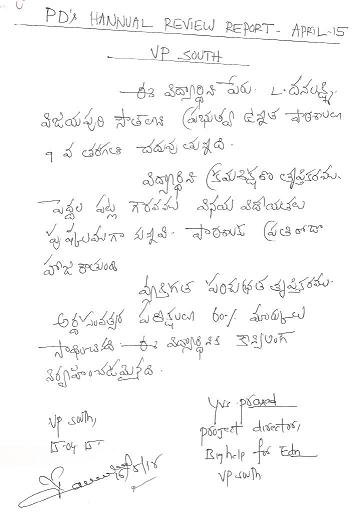 PD's HANNUAL REVIEW REPORT - APRIL-15
VP SOUTH
ఈ విద్యార్థిని పేరు. L. ధనలక్ష్మి.
విజయపురి సౌత్‌లోని ప్రభుత్వ ఉన్నత పాఠశాలలో
9 వ తరగతి చదువుతున్నది.
విద్యార్థిని క్రమశిక్షణ తృప్తికరము.
పెద్దల పట్ల గౌరవము వినయ విధేయతలు
పుష్కలముగా వున్నవి. పాఠశాలకు ప్రతిరోజూ
హాజరౌతుంది
వ్యక్తిగత పరిశుభ్రత తృప్తికరము.
అర్ధసంవత్సర పరీక్షలలో 60% మార్కులు
సాధించినది. ఈ విద్యార్థినికి కౌన్సిలింగ్
నిర్వహించడమైనది.
VP South,
15-04-15
YVS prasad
project director,
Bighelp for Edn
VP south